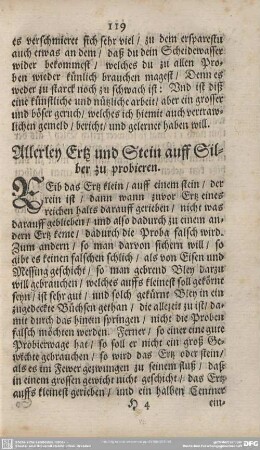 119
es verschmieret sich sehr viel / zu dem ersparestu
auch etwas an dem / daß du dein Scheidewasser
wider bekommest / welches du zu allen Pro-
ben wieder künlich brauchen magest / Denn es
weder zu starck noch zu schwach ist: Und ist diß
eine künstliche und nützliche arbeit / aber ein grosser
und böser geruch / welches ich hiemit auch vertraw-
lichen gemeld / bericht / und gelernet haben will.
Allerley Ertz und Stein auff Sil-
ber zu probieren.
REib das Ertz klein / auff einem stein / der
rein ist / dann wann zuvor Ertz eines
reichen halts darauff gerieben / nicht was
darauff geblieben / und also dadurch zu einem an-
dern Ertz keme / dadurch die Proba falsch wird.
Zum andern / so man darvon sichern will / so
gibt es keinen falschen schlich / als von Eisen und
Messing geschicht / so man gebrend Bley darzu
will gebrauchen / welches auffs kleinest soll gekörnt
seyn / ist sehr gut / und solch gekürnt Bley in ein
zugedeckte Büchsen gethan / die allezeit zu ist / da-
mit durch das hinein springen / nicht die Proben
falsch möchten werden. Ferner / so einer eine gute
Probierwage hat / so soll er nicht ein groß Ge-
wichte gebrauchen / so wird das Ertz oder stein /
als es im Fewer gezwungen zu seinem fluß / daß
in einem grossen gewicht nicht geschicht / das Ertz
auffs kleinest gerieben / und ein halben Centner
H 4
ein-
DFG